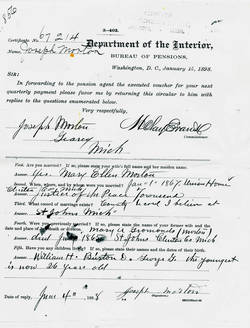 3-402.
Certificate No. 67214
Name, Joseph Morton
Department of the Interior,
BUREAU OF PENSIONS,
Washington, D. C., January 15, 1898.
SIR:
In forwarding to the pension agent the executed voucher for your next
quarterly payment please favor me by returning this circular to him with
replies to the questions enumerated below.
Very respectfully,
Joseph Morton
Commissioner.
Mich
First. Are you married? If so, please state your wife's full name and her maiden name.
Yes. Mary Ellen Morton
Second. When, where, and by whom were you married?
Jan 1 1867 Union Home
Justice of the Peace
Third. What record of marriage exists?
County record I believe at
St Johns Mich
Fourth. Were you previously married? If so, please state the name of your former wife and the
date and place of her death or divorce.
Mary
died 186 St Johns Clinton Co Mich
Fifth. Have you any children living? If so, please state their names and the dates of their birth.
William H. D. George G. the youngest
is now 26 years old
Date of reply, June 4th, 189
Joseph Morton